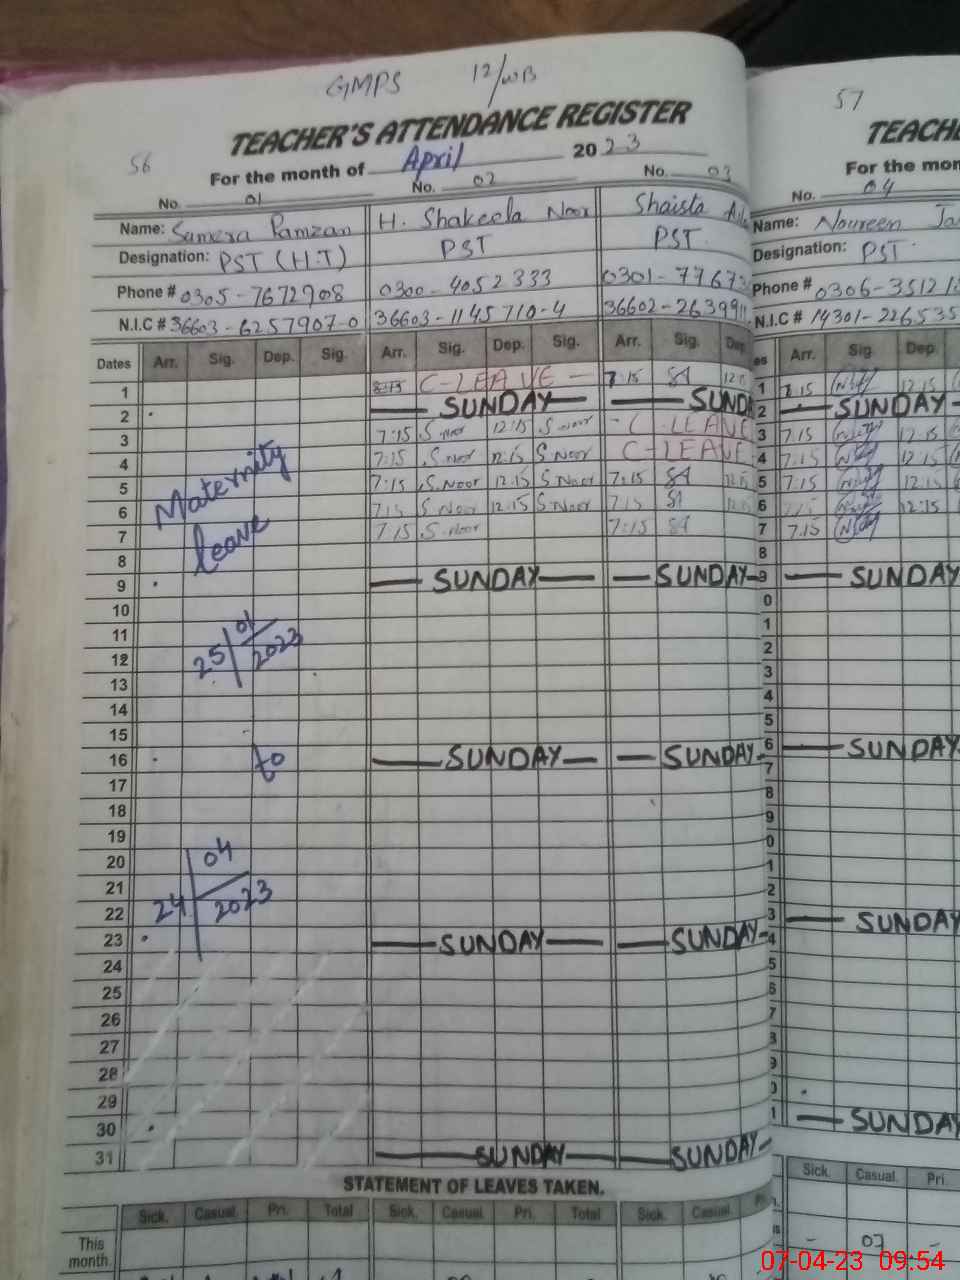 GMPS 12/WB
TEACHER'S ATTENDANCE REGISTER
56 For the month of April 2023
No. 01 No. 02 No. 03
Name: Sumera Ramzan H. Shakeela Noor Shaista
Designation: PST (H.T) PST PST
Phone # 0305-7672908 0300-4052333 0301-7767
N.I.C # 36603-6257907-0 36603-1145710-4 36602-26399
Dates Arr. Sig. Dep. Sig. Arr. Sig. Dep. Sig. Arr. Sig. Dep
1 C-LEAVE 7:15 SA 12:15
2 SUNDAY SUNDA
3 7:15 S. Noor 12:15 S. Noor C-LEAVE
4 7:15 S. Noor 12:15 S. Noor C-LEAVE
5 7:15 S. Noor 12:15 S. Noor 7:15 SA 12:15
6 7:15 S. Noor 12:15 S. Noor 7:15 SA 12:15
7 7:15 S. Noor 7:15 SA
8
9 SUNDAY SUNDAY
10
11
12
13
14
15
16 SUNDAY SUNDAY
17
18
19
20
21
22
23 SUNDAY SUNDAY
24
25
26
27
28
29
30
31 SUNDAY SUNDAY
Maternity
leave
25/01/2023
to
24/04/2023
STATEMENT OF LEAVES TAKEN.
Sick. Casual. Pri. Total Sick. Casual. Pri. Total Sick. Casual. Pri
This
month.
57
TEACHE
For the mon
No. 04
Name: Noureen Ja
Designation: PST
Phone # 0306-35121
N.I.C # 14301-226535
es Arr. Sig Dep.
1 7:15 12:15
2 SUNDAY
3 7:15 12:15
4 7:15 12:15
5 7:15 12:15
6 7:15 12:15
7 7:15
8
9 SUNDAY
0
1
2
3
4
5
6 SUNDAY
7
8
9
0
1
2
3 SUNDAY
4
5
6
7
8
9
0
1 SUNDAY
Sick. Casual. Pri.
- 03 -
07-04-23 09:54